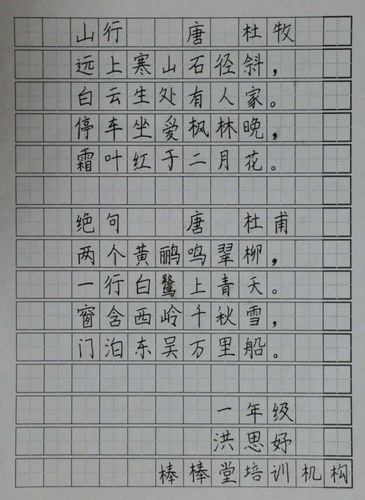 山行 唐 杜牧
远上寒山石径斜，
白云生处有人家。
停车坐爱枫林晚，
霜叶红于二月花。
绝句 唐 杜甫
两个黄鹂鸣翠柳，
一行白鹭上青天。
窗含西岭千秋雪，
门泊东吴万里船。
一年级
洪思妤
棒棒堂培训机构